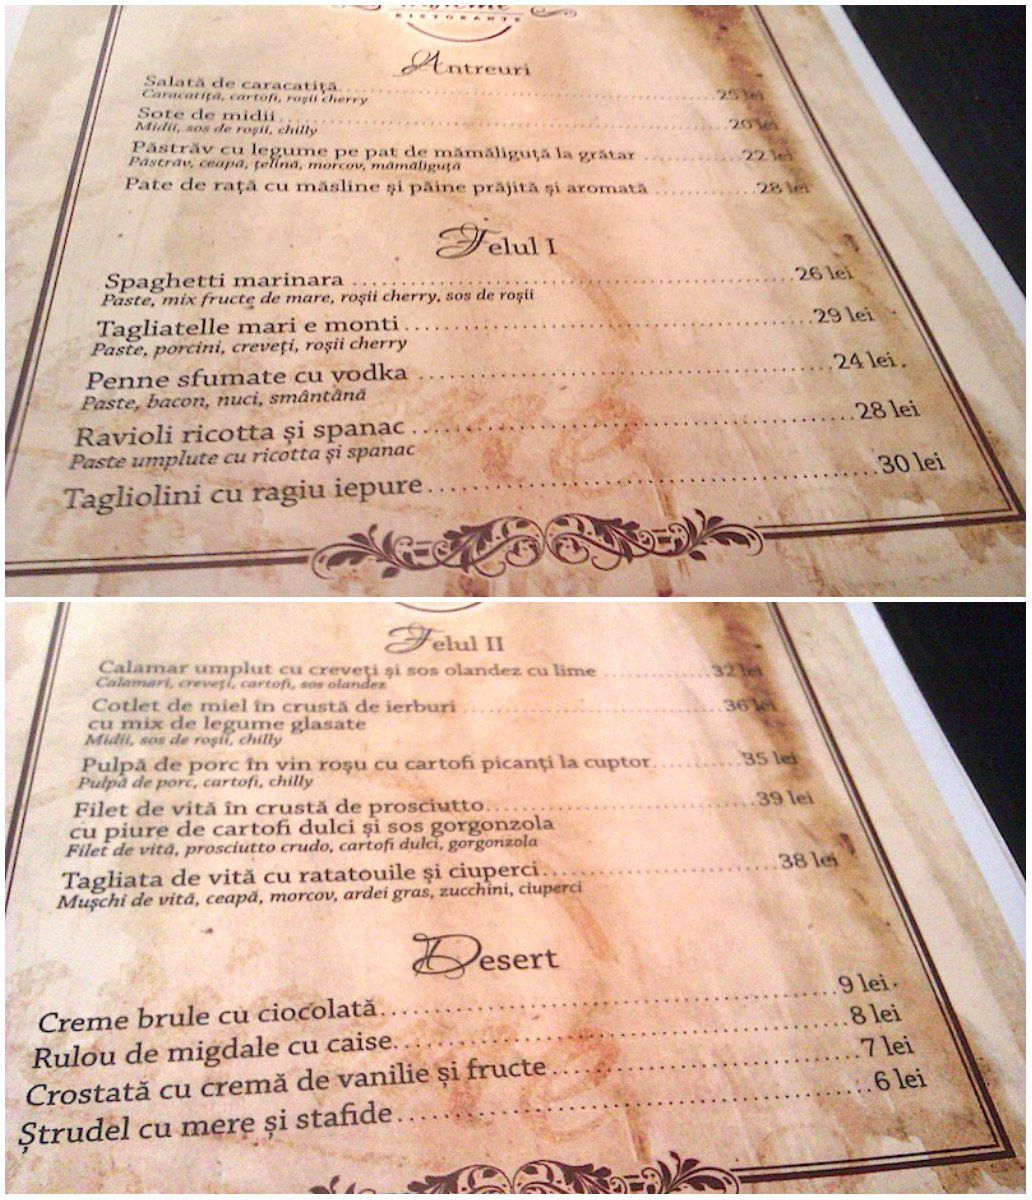 RISTORANTE
Antreuri
Salată de caracatiță 25 lei
Caracatiță, cartofi, roșii cherry
Sote de midii 20 lei
Midii, sos de roșii, chilly
Păstrăv cu legume pe pat de mămăliguță la grătar 22 lei
Păstrăv, ceapă, țelină, morcov, mămăliguță
Pate de rață cu măsline și pâine prăjită și aromată 28 lei
Felul I
Spaghetti marinara 26 lei
Paste, mix fructe de mare, roșii cherry, sos de roșii
Tagliatelle mari e monti 29 lei
Paste, porcini, creveți, roșii cherry
Penne sfumate cu vodka 24 lei
Paste, bacon, nuci, smântână
Ravioli ricotta și spanac 28 lei
Paste umplute cu ricotta și spanac
Tagliolini cu ragiu iepure 30 lei
Felul II
Calamar umplut cu creveți și sos olandez cu lime 32 lei
Calamari, creveți, cartofi, sos olandez
Cotlet de miel în crustă de ierburi 36 lei
cu mix de legume glasate
Midii, sos de roșii, chilly
Pulpă de porc în vin roșu cu cartofi picanți la cuptor 35 lei
Pulpă de porc, cartofi, chilly
Filet de vită în crustă de prosciutto 39 lei
cu piure de cartofi dulci și sos gorgonzola
Filet de vită, prosciutto crudo, cartofi dulci, gorgonzola
Tagliata de vită cu ratatouile și ciuperci 38 lei
Mușchi de vită, ceapă, morcov, ardei gras, zucchini, ciuperci
Desert
Creme brule cu ciocolată 9 lei
Rulou de migdale cu caise 8 lei
Crostată cu cremă de vanilie și fructe 7 lei
Ștrudel cu mere și stafide 6 lei